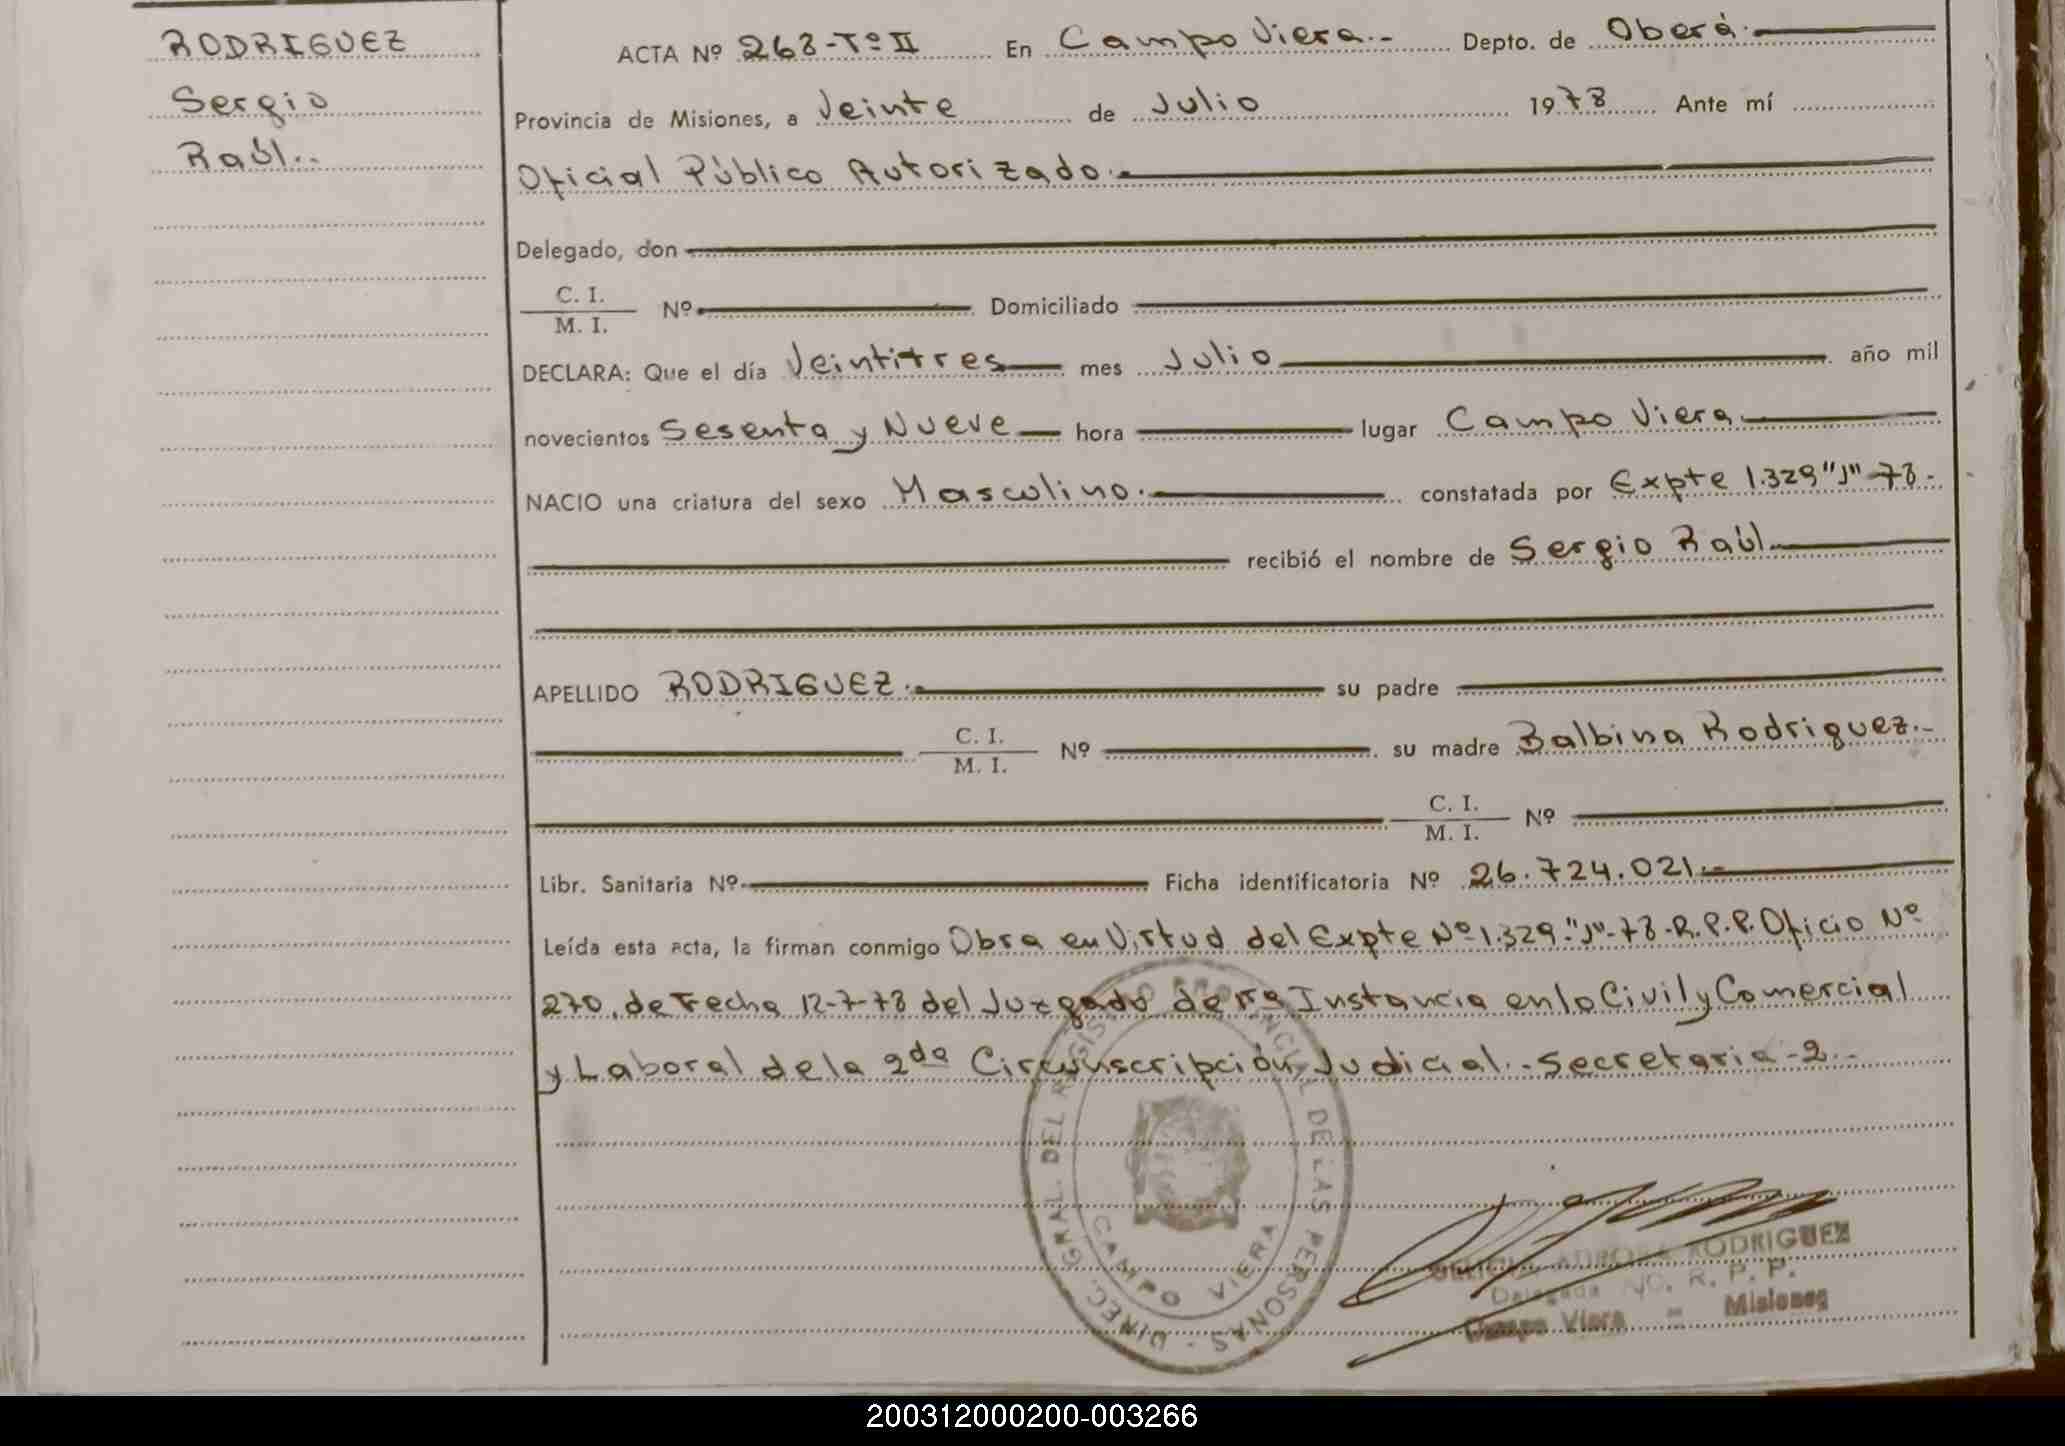 RODRIGUEZ
Sergio
Raúl..
ACTA Nº 268-Tº II En Campo Viera.- Depto. de Oberá.
Provincia de Misiones, a Veinte de Julio 1978 Ante mí
Oficial Público Autorizado.
Delegado, don
C. I.
M. I. Nº Domiciliado
DECLARA: Que el día Veintitres mes Julio año mil
novecientos Sesenta y Nueve hora lugar Campo Viera
NACIO una criatura del sexo Masculino. constatada por Expte 1.329 "J"-78-
recibió el nombre de Sergio Raúl
APELLIDO RODRIGUEZ. su padre
C. I.
M. I. Nº su madre Balbina Rodriguez.-
C. I.
M. I. Nº
Libr. Sanitaria Nº Ficha identificatoria Nº 26.724.021.-
Leída esta acta, la firman conmigo Obra en Virtud del Expte Nº 1.329-"J"-78-R.P.P. Oficio Nº
270. de Fecha 12-7-78 del Juzgado de 1ra Instancia en lo Civil y Comercial
y Laboral de la 2da Circunscripción Judicial.-Secretaria-2.-
DIREC. GRAL. DEL REGISTRO PROVINCIAL DE LAS PERSONAS -
CAMPO VIERA
RODRIGUEZ
Delegada R. P. P.
Campo Viera - Misiones
200312000200-003266